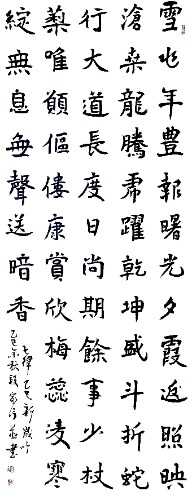 雪兆年豐報曙光夕霞返照映
滄桑龍騰虎躍乾坤盛斗折蛇
行大道長度日尚期餘事少杖
藜唯願傴僂康賞欣梅蕊凌寒
綻無息無聲送暗香
七律乙巳新歲吟